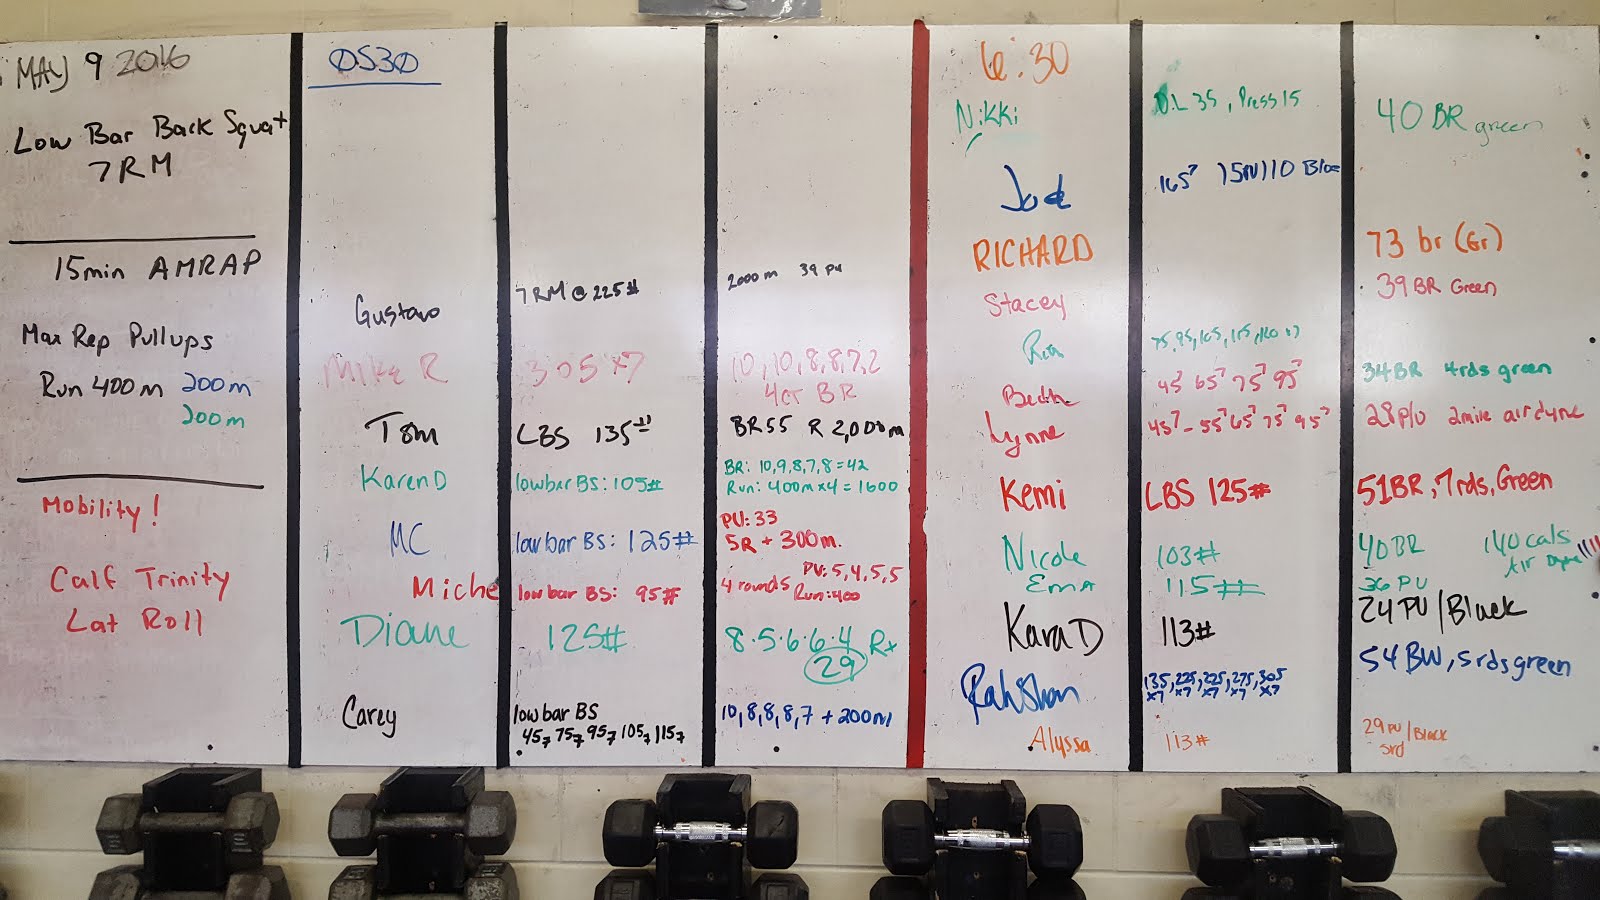 MAY 9 2016
Low Bar Back Squat
7RM
15min AMRAP
Max Rep Pullups
Run 400m 200m
200m
Mobility!
Calf Trinity
Lat Roll
0530
Gustavo 7RM @ 225# 2000m 39 PU
Mike R 305x7 10,10,8,8,7,2
4 BR
Tom LBS 135 BR55 R 2,000m
Karen D lowbar BS: 105# BR: 10,9,8,7,8=42
Run: 400mx4=1600
MC lowbar BS: 125# PU: 33
5R + 300m.
Miche lowbar BS: 95# 4 rounds PU: 5,4,5,5
Run: 400
Diane 125# 8.5.6.6.4 Rx
29
Carey lowbar BS 10,8,8,8,7 + 200m
45 7 75 7 95 7 105 7 115 7
6:30
Nikki DL 35, Press 15 40 BR green
165 7
RICHARD 73 br (Gr)
Stacey 39 BR Green
75,95,105,115,120
34BR 4rds green
45 7 65 7 75 7 95 7
Lynne 45 7 - 55 7 65 7 75 7 95 7 28 p/u 2mile airdyne
Kemi LBS 125# 51BR, 7rds, Green
Nicole 103# 40BR 140 cals
Air Dyne
Ema 115# 36 PU
Kara D 113# 24 PU/Black
Rahshon 135, 225, 225, 275, 305 54 BW, 5rds green
x7 x7 x7 x7 x7
Alyssa 113# 29 PU/Black
5rd